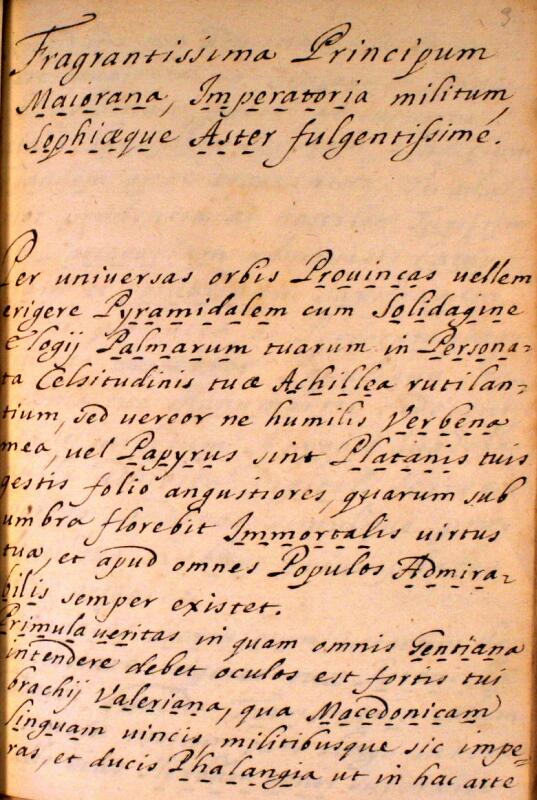 3
Fragrantissima Principum
Maiorana, Imperatoria militum,
Sophiæque Aster fulgentissimé.
Per universas orbis Prouincas uellem
erigere Pyramidalem cum Solidagine
Elogij Palmarum tuarum in Persona-
ta Celsitudinis tuæ Achillea rutilan-
tium, sed uereor ne humilis Verbena
mea, uel Papyrus sint Platanis tuis
gestis folio angustiores, quarum sub
umbra florebit Immortalis uirtus
tua, et apud omnes Populos Admira-
bilis semper existet.
Primula ueritas in quam omnis Gentiana
intendere debet oculos est fortis tui
brachij Valeriana, qua Macedonicam
linguam uincis, militibusque sic impe-
ras, et ducis Phalangia ut in hac arte